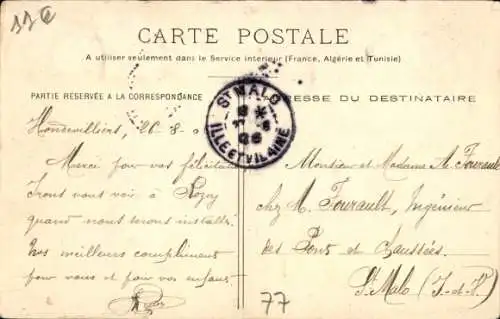 CARTE POSTALE
A utiliser seulement dans le Service intérieur (France, Algérie et Tunisie)
PARTIE RÉSERVÉE A LA CORRESPONDANCE
ADRESSE DU DESTINATAIRE
ST MALO
ILLE ET VILAINE
26-8-
Merci pour vos félicitations
Irons vous voir à Rozoy
quand nous serons installés.
Nos meilleurs compliments
pour vous et pour vos enfants.
Monsieur et Madame A. Fourault
chez M. Fourault, Ingénieur
des Ponts et Chaussées.
St Malo (I-et-V)
77